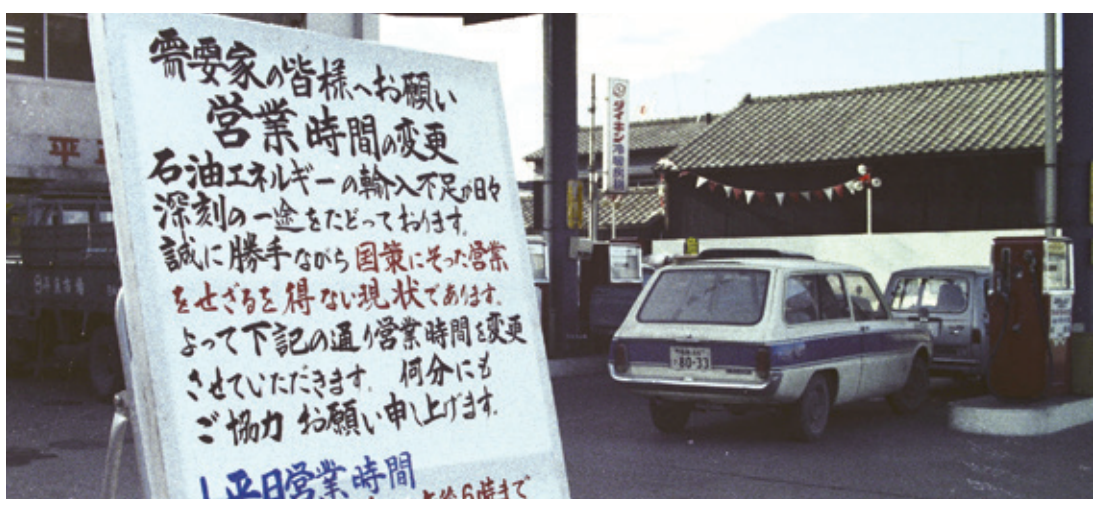 需要家の皆様へお願い
営業時間の変更
石油エネルギーの輸入不足が日々
深刻の一途をたどっております。
誠に勝手ながら国策にそった営業
をせざるを得ない現状であります。
よって下記の通り営業時間を変更
させていただきます。何分にも
ご協力お願い申し上げます。
1 平日営業時間
午后6時まで
平
ダイキン
80-33